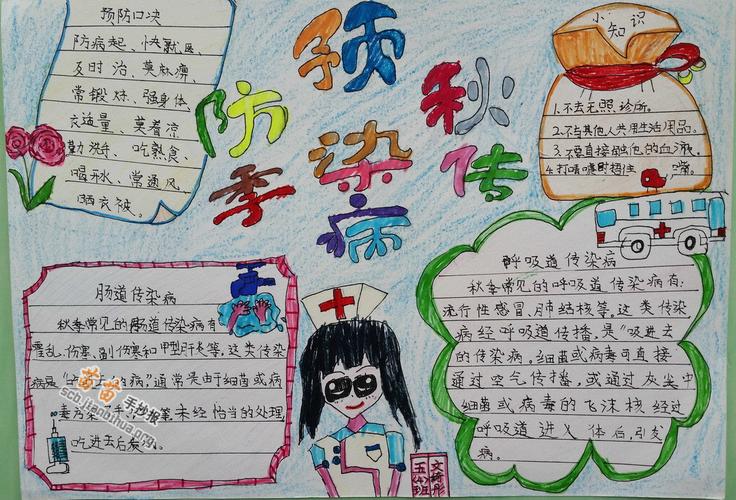 预防秋季传染病
预防口决
防病起、快就医、
及时治、莫麻痹、
常锻炼、强身体、
衣适量、莫着凉
勤洗手、吃熟食、
喝开水、常通风、
晒衣被。
小知识
1.不去无照诊所。
2.不与其他人共用生活用品。
3.不要直接触他的血液。
4.打喷嚏时捂住嘴。
肠道传染病
秋季常见的肠道传染病有
霍乱、伤寒、副伤寒和甲型肝炎等。这类传染
病是"吃 的病,"通常是由于细菌或病
毒污染 手、 等未经恰当的处理,
吃进去后发
呼吸道传染病
秋季常见的呼吸道传染病有:
流行性感冒、肺结核等。这类传染
病经呼吸道传播,是"吸进去
的传染病。细菌或病毒可直接
通过空气传播,或通过灰尘中
细菌或病毒的飞沫核经过
呼吸道进入体后,引发
病。
苗苗手抄报
scb.jitanhua.org
五 班
文 彤